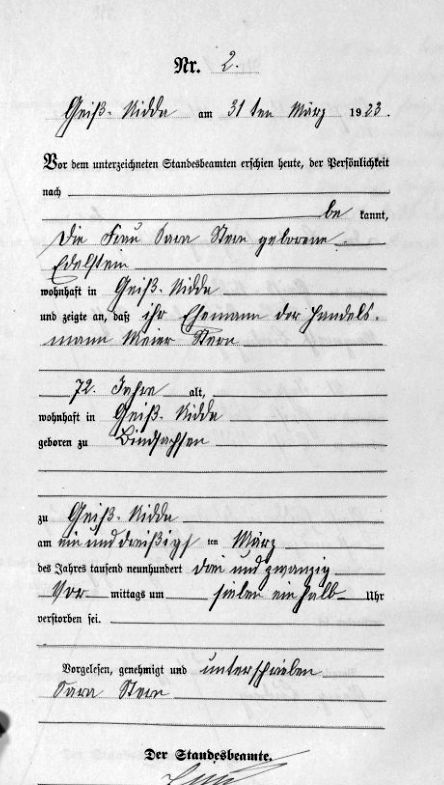 Nr. 2.
Geiß-Nidda am 31ten März 1923.
Vor dem unterzeichneten Standesbeamten erschien heute, der Persönlichkeit
nach
be kannt,
die Frau Sara Stern geborene
Edelstein
wohnhaft in Geiß-Nidda
und zeigte an, daß ihr Ehemann der Handels-
mann Meier Stern
72. Jahre alt,
wohnhaft in Geiß-Nidda
geboren zu Bindsachsen
zu Geiß-Nidda
am einunddreißigs ten März
des Jahres tausend neunhundert drei und zwanzig
Vor mittags um sieben ein halb Uhr
verstorben sei.
Vorgelesen, genehmigt und unterschrieben
Sara Stern
Der Standesbeamte.